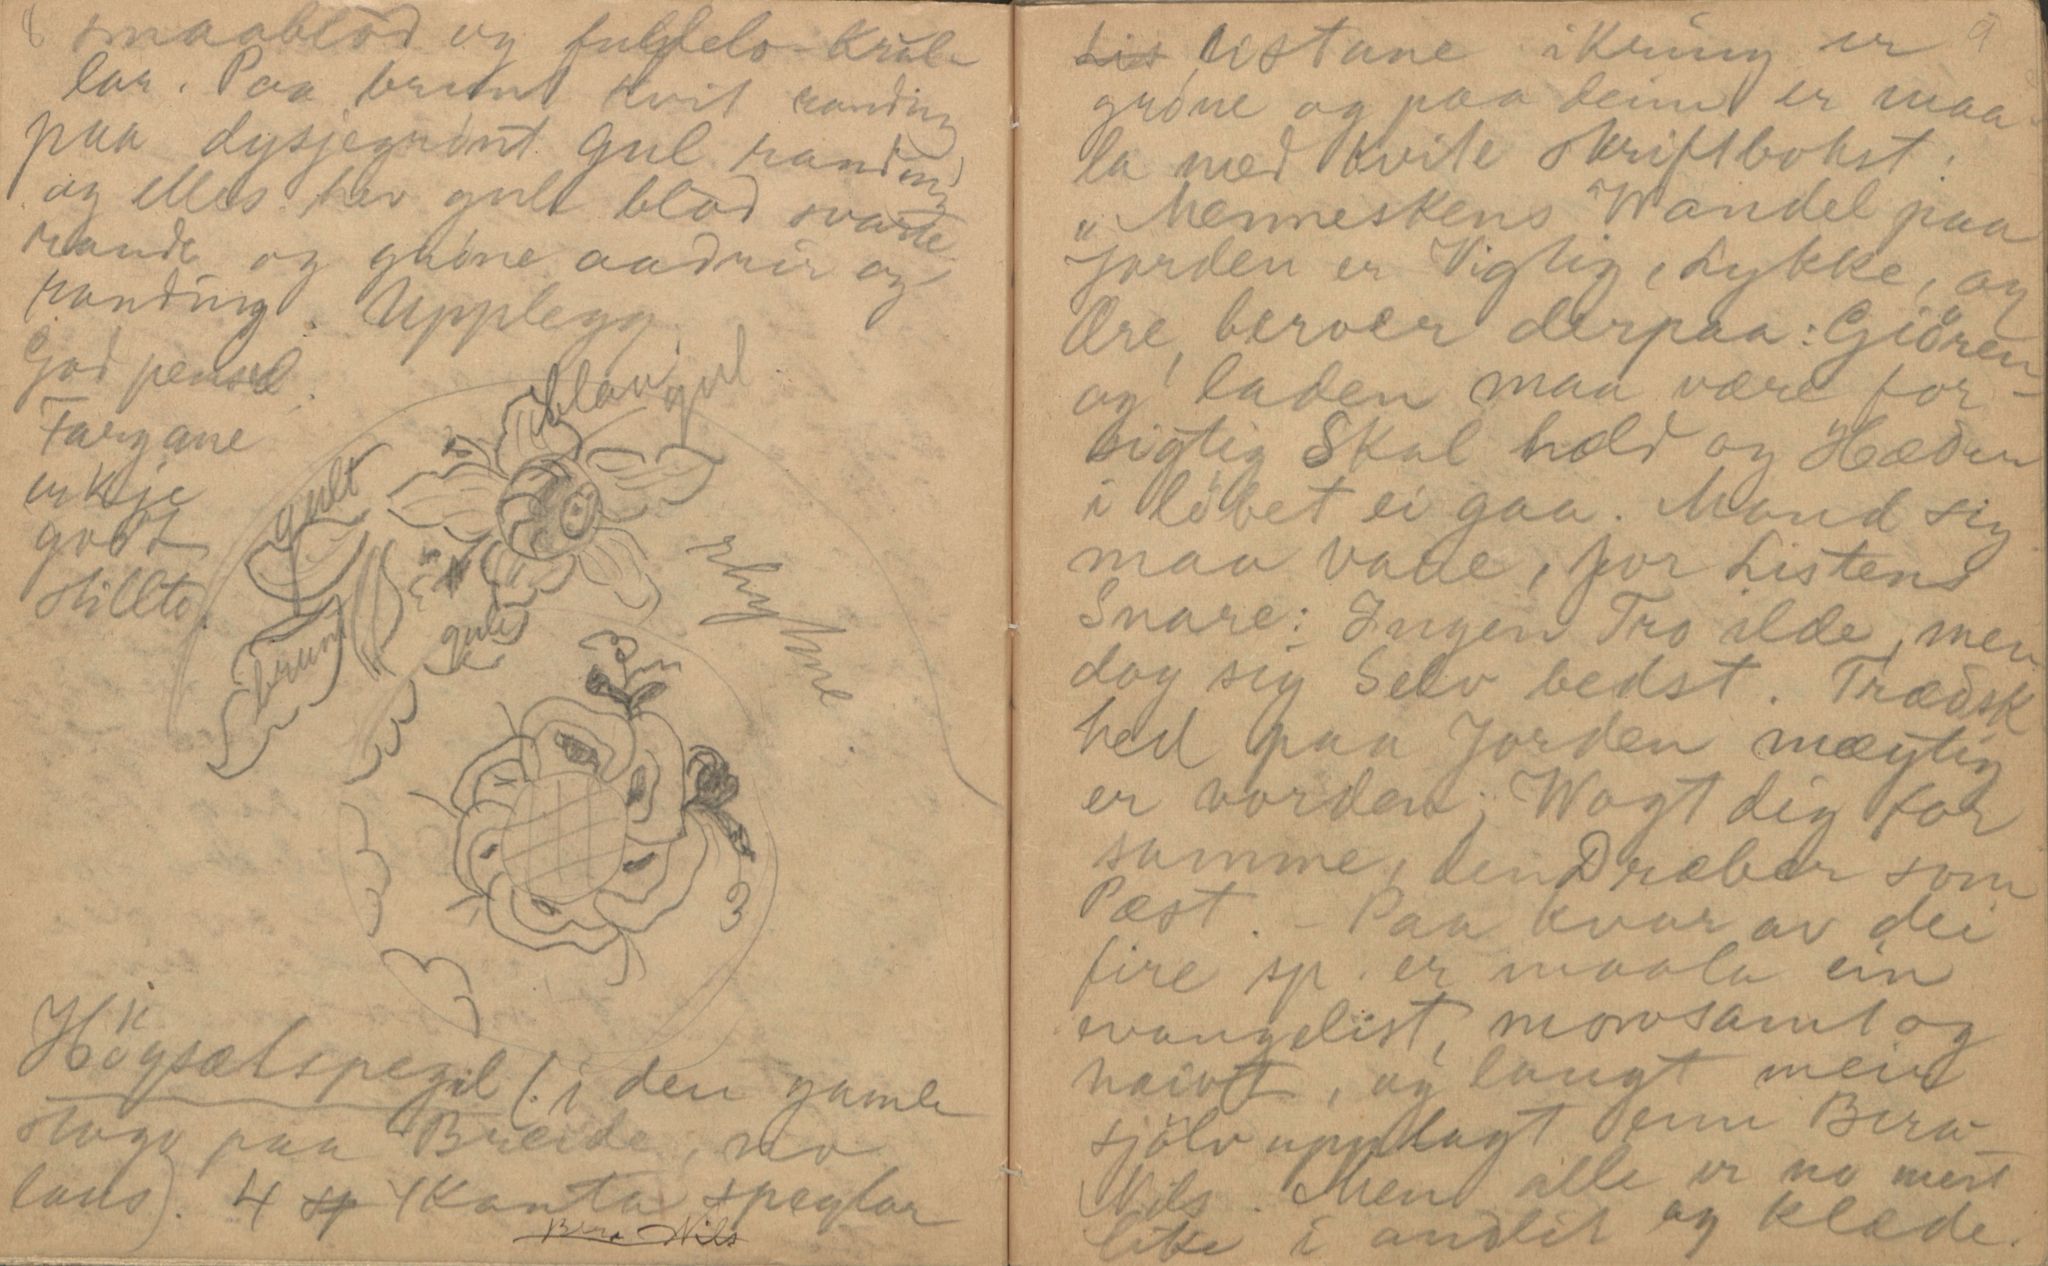 8 smaablod og fulldelo-Krul-
lar. Paa brunt kvit randing
paa dysjegrönt. Gul randing
og elles hev gult blod svarte
rande og gröne aadrir og
randing. Upplegg
God pensel.
Fargane
erkje
godt
stillto.
blau gul
gult
brunt
gult
3
Högsætspegil (i den gamle
stogo paa Breide, no
laus). 4 sp 4Kanta speglar
Bera Nils
9
Lis Listane ikring er
gröne og paa deim er maa-
la med kvite skriftbokst.
„Menneskens Wandel paa
Jorden er Vigtig, Lykke, og
Ære, beroer derpaa: Giören
og laden maa være for-
sigtig Skal held og Hæder
i löbet ei gaa. Mand sig
maa vare, for Listens
Snare: Ingen Tro ilde, men
dog sig Selv bedst. Trædsk
hed paa Jorden mægtig
er vorden; Wogt dig for
samme, den Dræber som
Pæst. – Paa kvar av dei
fire sp. er maala ein
evangelist, morosamt og
naivt, og langt meir
sjölvupplagt enn Bera
Nils. Men alle er no mest
like i andlit og klæde.